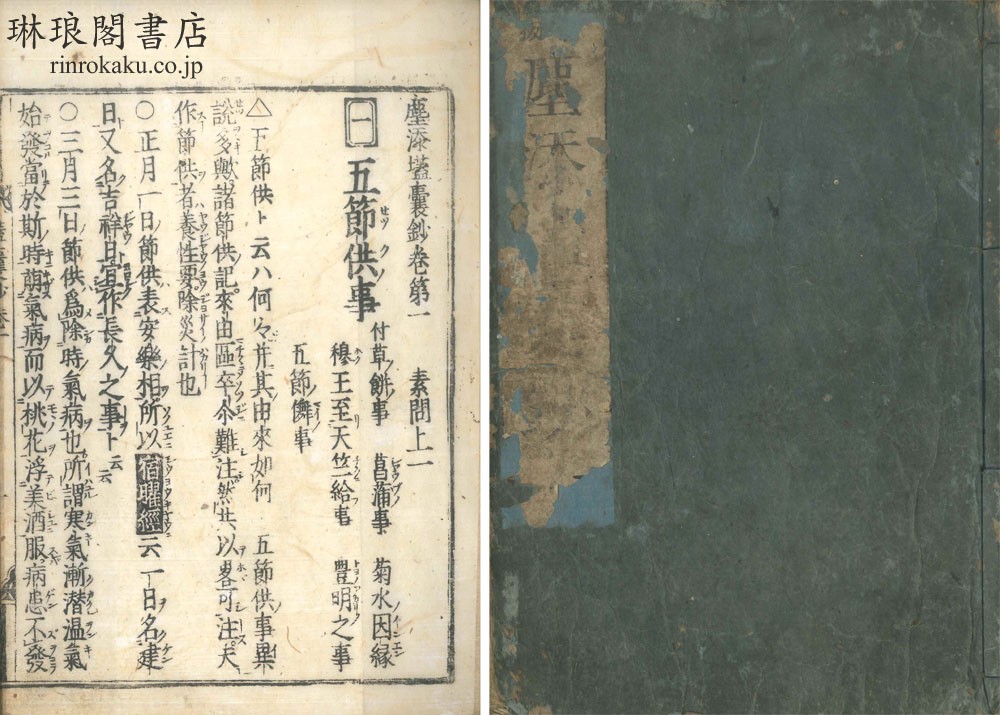 琳琅閣書店
rinrokaku.co.jp
塵添壒囊鈔卷第一 素問上一
一 五節供事
付草餅事 菖蒲事 菊水因縁
穆王至天竺給事 豊明之事
五節儛事
△五節供ト云ハ何々并其由來如何 五節供事異
說多歟諸節供記來由區卒尒難注然共以畧可注夫
作節供者養性要除災計也
〇正月一日節供表安樂相所以宿曜經云一日名建
日又名吉祥日宜作長久之事ト云云
〇三月三日節供爲除時氣病也所謂寒氣漸潜温氣
始發當於斯時萠氣病而以桃花浮美酒服病患不發
塵添